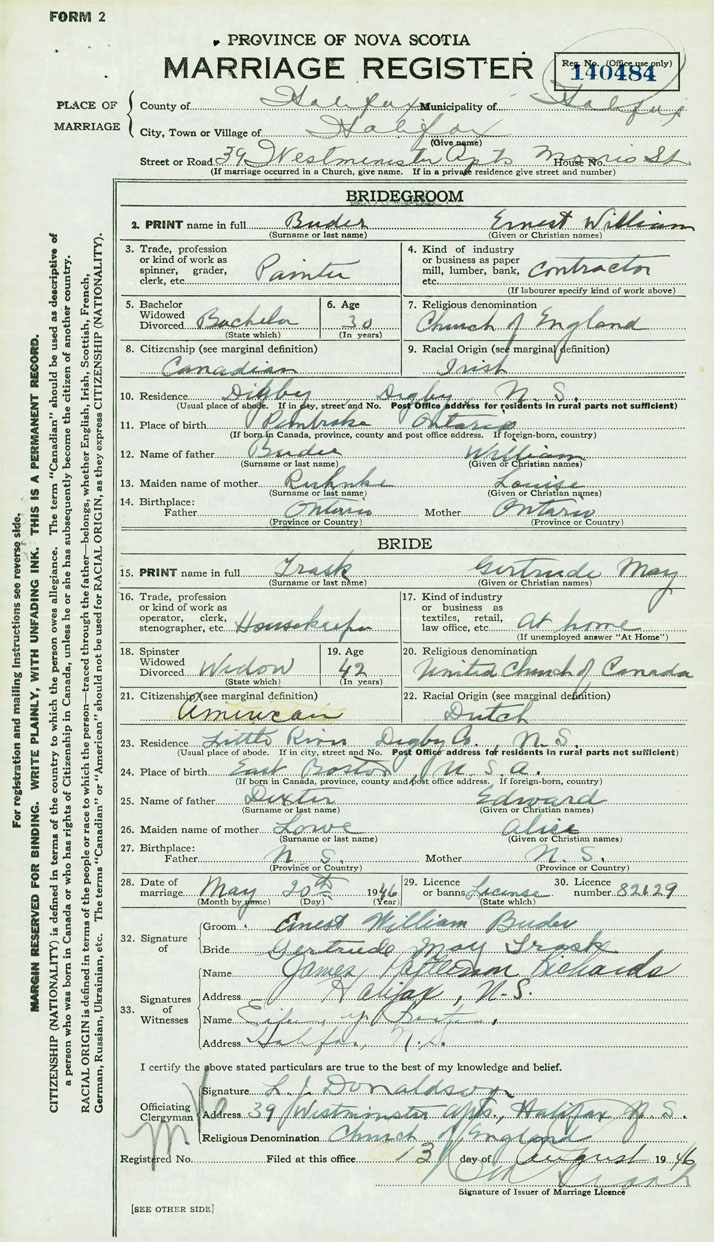 FORM 2
PROVINCE OF NOVA SCOTIA
MARRIAGE REGISTER
Reg. No. (Office use only)
140484
PLACE OF MARRIAGE
County of Halifax Municipality of Halifax
City, Town or Village of Halifax
(Give name)
Street or Road 39 Westminister Apts Morris St. House No.
(If marriage occurred in a Church, give name. If in a private residence give street and number)
BRIDEGROOM
2. PRINT name in full Buder Ernest William
(Surname or last name) (Given or Christian names)
3. Trade, profession or kind of work as spinner, grader, clerk, etc. Painter
4. Kind of industry or business as paper mill, lumber, bank, etc. Contractor
(If labourer specify kind of work above)
5. Bachelor Widowed Divorced Bachelor
(State which)
6. Age 30
(In years)
7. Religious denomination
Church of England
8. Citizenship (see marginal definition)
Canadian
9. Racial Origin (see marginal definition)
Irish
10. Residence Digby, Digby, N. S.
(Usual place of abode. If in city, street and No. Post Office address for residents in rural parts not sufficient)
11. Place of birth Pembroke Ontario
(If born in Canada, province, county and post office address. If foreign-born, country)
12. Name of father Buder William
(Surname or last name) (Given or Christian names)
13. Maiden name of mother Ruhnke Louise
(Surname or last name) (Given or Christian names)
14. Birthplace: Father Ontario Mother Ontario
(Province or Country) (Province or Country)
BRIDE
15. PRINT name in full Trask Gertrude May
(Surname or last name) (Given or Christian names)
16. Trade, profession or kind of work as operator, clerk, stenographer, etc. Housekeeper
17. Kind of industry or business as textiles, retail, law office, etc. At home
(If unemployed answer "At Home")
18. Spinster Widowed Divorced Widow
(State which)
19. Age 42
(In years)
20. Religious denomination
United Church of Canada
21. Citizenship (see marginal definition)
American
22. Racial Origin (see marginal definition)
Dutch
23. Residence Little River Digby Co. N. S.
(Usual place of abode. If in city, street and No. Post Office address for residents in rural parts not sufficient)
24. Place of birth East Boston, U. S. A.
(If born in Canada, province, county and post office address. If foreign-born, country)
25. Name of father Dexter Edward
(Surname or last name) (Given or Christian names)
26. Maiden name of mother Lowe Alice
(Surname or last name) (Given or Christian names)
27. Birthplace: Father N. S. Mother N. S.
(Province or Country) (Province or Country)
28. Date of marriage May 20th 1946
(Month by name) (Day) (Year)
29. Licence or banns License
(State which)
30. Licence number 82129
32. Signature of
Groom Ernest William Buder
Bride Gertrude May Trask
33. Signatures of Witnesses
Name James Patterson Richards
Address Halifax, N.S.
Name
Address Halifax, N.S.
I certify the above stated particulars are true to the best of my knowledge and belief.
Officiating Clergyman
Signature L. J. Donaldson
Address 39 Westminster Apts., Halifax N. S.
Religious Denomination Church of England
Registered No. Filed at this office 13 day of August 1946
Signature of Issuer of Marriage Licence
[SEE OTHER SIDE]
For registration and mailing instructions see reverse side.
MARGIN RESERVED FOR BINDING. WRITE PLAINLY, WITH UNFADING INK. THIS IS A PERMANENT RECORD.
CITIZENSHIP (NATIONALITY) is defined in terms of the country to which the person owes allegiance. The term "Canadian" should be used as descriptive of
a person who was born in Canada or who has rights of Citizenship in Canada, unless he or she has subsequently become the citizen of another country.
RACIAL ORIGIN is defined in terms of the people or race to which the person—traced through the father—belongs, whether English, Irish, Scottish, French,
German, Russian, Ukrainian, etc. The terms "Canadian" or "American" should not be used for RACIAL ORIGIN, as they express CITIZENSHIP (NATIONALITY).